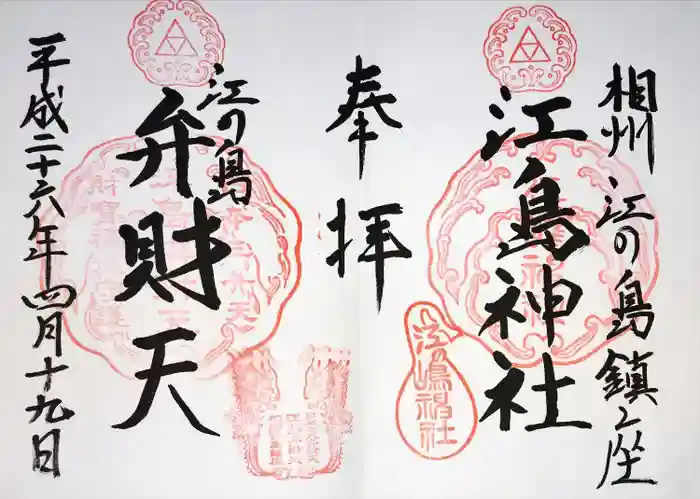 相州江の島鎮座
江島神社
奉拝
江の島
弁財天
平成二十六年四月十九日
江嶋神社